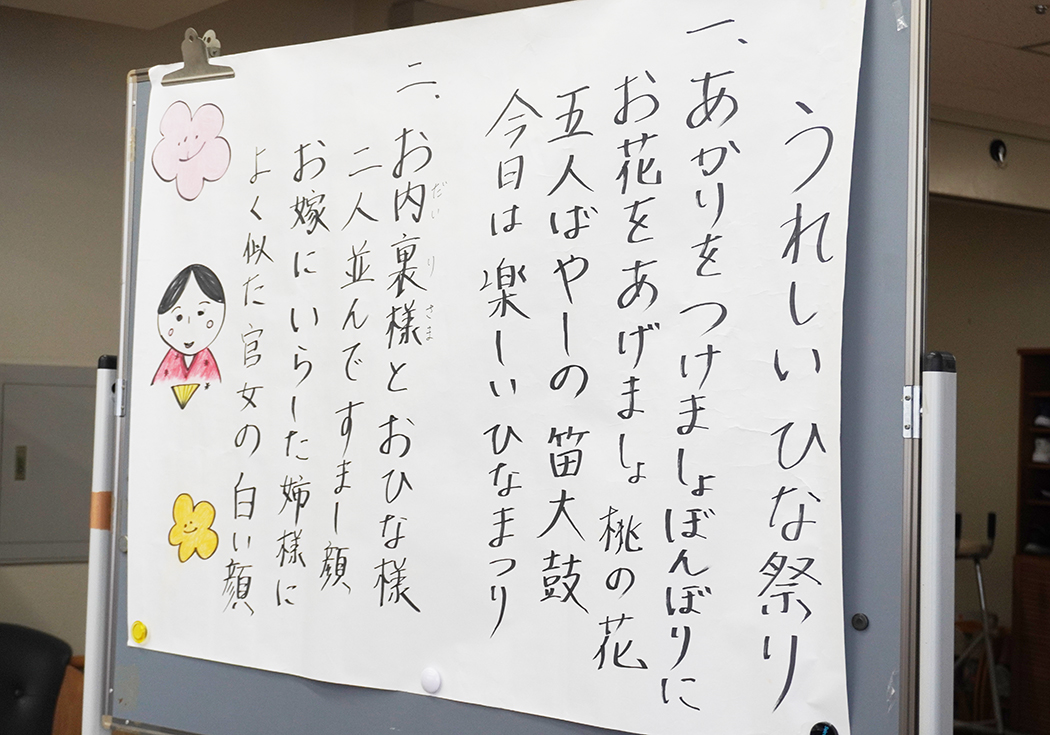 うれしいひな祭り
一、あかりをつけましょぼんぼりに
お花をあげましょ 桃の花
五人ばやしの笛大鼓
今日は楽しいひなまつり
二、お内裏様とおひな様
だいりさま
二人並んですまし顔
お嫁にいらした姉様に
よく似た官女の白い顔